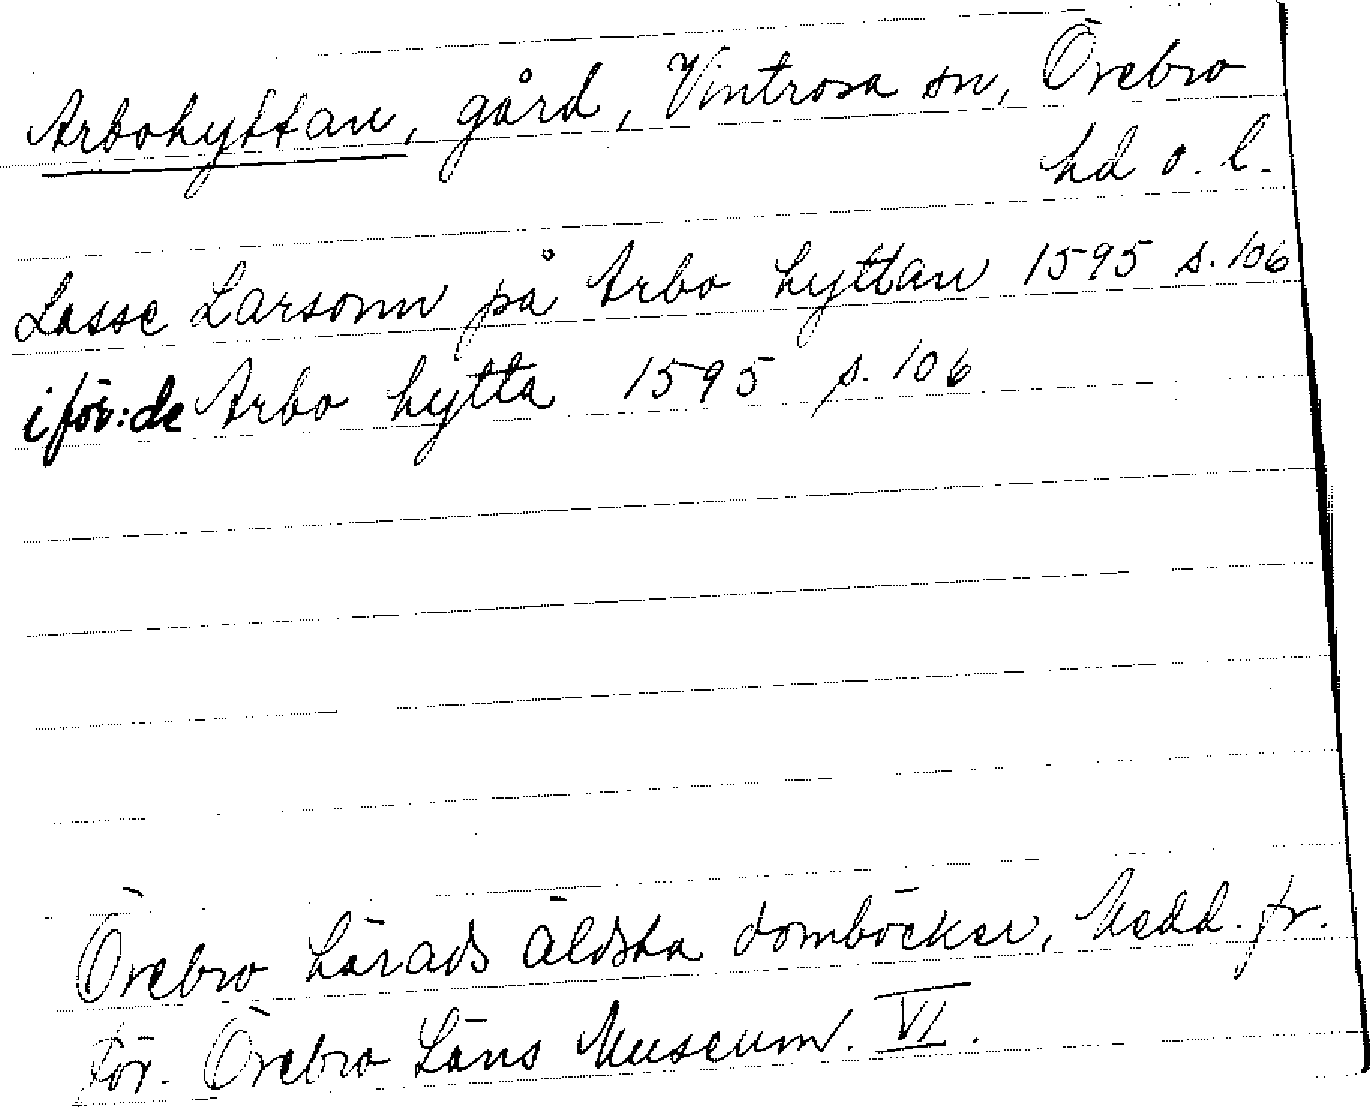 Arbohyttan, gård, Vintrosa sn, Örebro
hd o. l.
Lasse Larsonn på Arbo hyttan 1595 s. 106
i för:de Arbo hytta 1595 s. 106
Örebro härads äldsta domböcker, Medd. fr.
för. Örebro Läns Museum. VI.